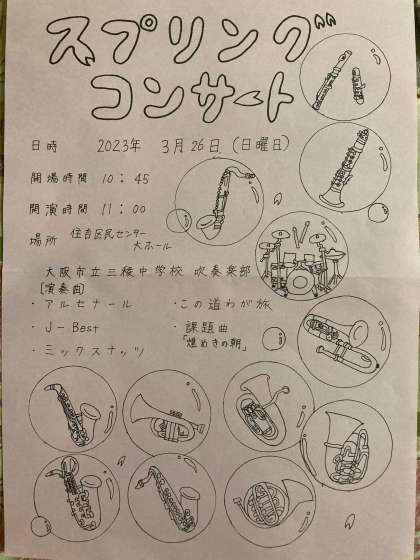 スプリング
コンサート
日時 2023年 3月26日(日曜日)
開場時間 10:45
開演時間 11:00
場所 住吉区民センター
大ホール
大阪市立三稜中学校 吹奏楽部
[演奏曲]
・アルセナール ・この道わが旅
・J-Best ・課題曲
「煌めきの朝」
・ミックスナッツ